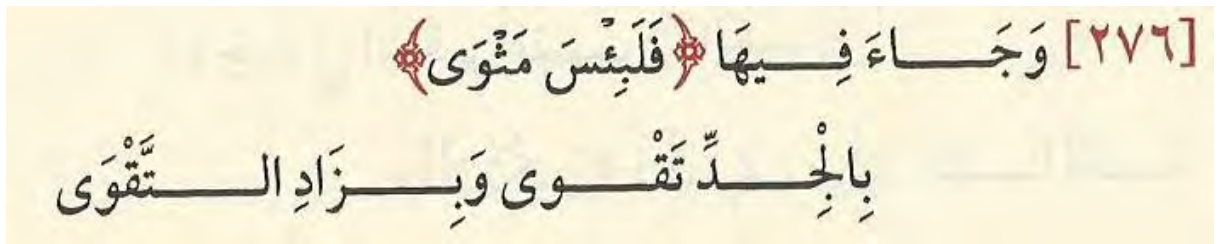 [٢٧٦] وَجَاءَ فِيهَا ﴿فَلَبِئْسَ مَثْوَى﴾
بِالْجِدِّ تَقْوى وَبِزَادِ التَّقْوَى